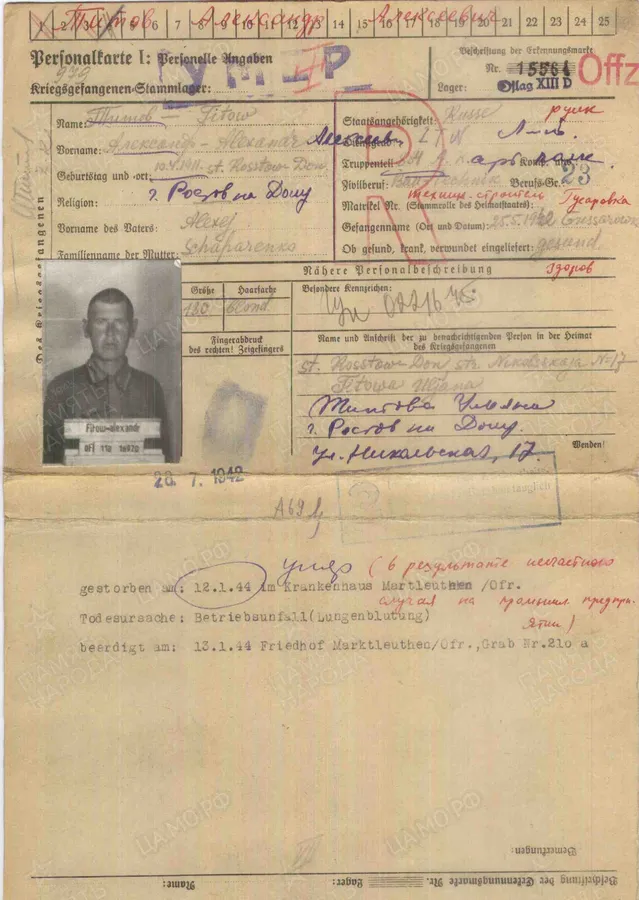 Титов Александр Алексеевич
1 2 3 4 5 6 7 8 9 10 11 12 13 14 15 16 17 18 19 20 21 22 23 24 25
Personalkarte I: Personelle Angaben
Kriegsgefangenen-Stammlager:
УМЕР
Beschriftung der Erkennungsmarke
Nr. 15564
Lager: Oflag XIII D
Offz
Name: Титов - Titow
Vorname: Александр - Alexandr Алексеев.
Geburtstag und -ort: st. Rosstow Don
г. Ростов на Дону
Religion:
Vorname des Vaters: Alexej
Familienname der Mutter: Schaparenko
Staatsangehörigkeit: Russe русск
Dienstgrad: Ltn Л-нт.
Truppenteil: Komp. usw.
Zivilberuf: Bautechnik Berufs-Gr. 23
техник-строитель Гусаровка
Matrikel Nr. (Stammrolle des Heimatstaates):
Gefangennahme (Ort und Datum): 25.5.1942 Gussarowka
Ob gesund, krank, verwundet eingeliefert: gesund
здоров
Des Kriegsgefangenen
Nähere Personalbeschreibung
Größe Haarfarbe
180 blond
Besondere Kennzeichen:
Fingerabdruck
des rechten! Zeigefingers
Name und Anschrift der zu benachrichtigenden Person in der Heimat
des Kriegsgefangenen
st. Rosstow Don str. Nikolskaja N-17
Titowa Uljana
Титова Ульяна
г. Ростов на Дону.
ул. Никольская, 17.
Wenden!
Titow-alexandr
28. 7. 1942
умер (в результате несчастного
случая на промышл. предпри-
ятии)
gestorben am: 12.1.44 im Krankenhaus Martleuthen /Ofr.
Todesursache: Betriebsunfall(Lungenblutung)
beerdigt am: 13.1.44 Friedhof Marktleuthen/Ofr.,Grab Nr.21o a
Bemerkungen:
Beschriftung der Erkennungsmarke Nr. Lager: Name:
ПАМЯТЬ НАРОДА
ЦАМО.РФ